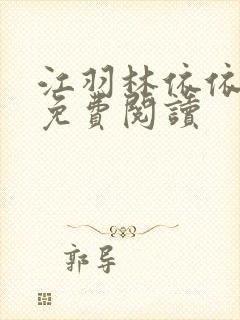 江羽林依依
免費閱讀
郭导